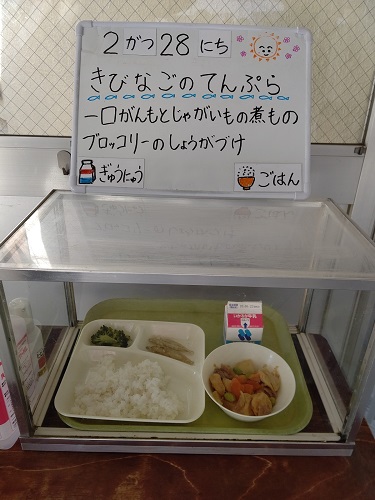 2がつ28にち
きびなごのてんぷら
一口がんもとじゃがいもの煮もの
ブロッコリーのしょうがづけ
ぎゅうにゅう
ごはん